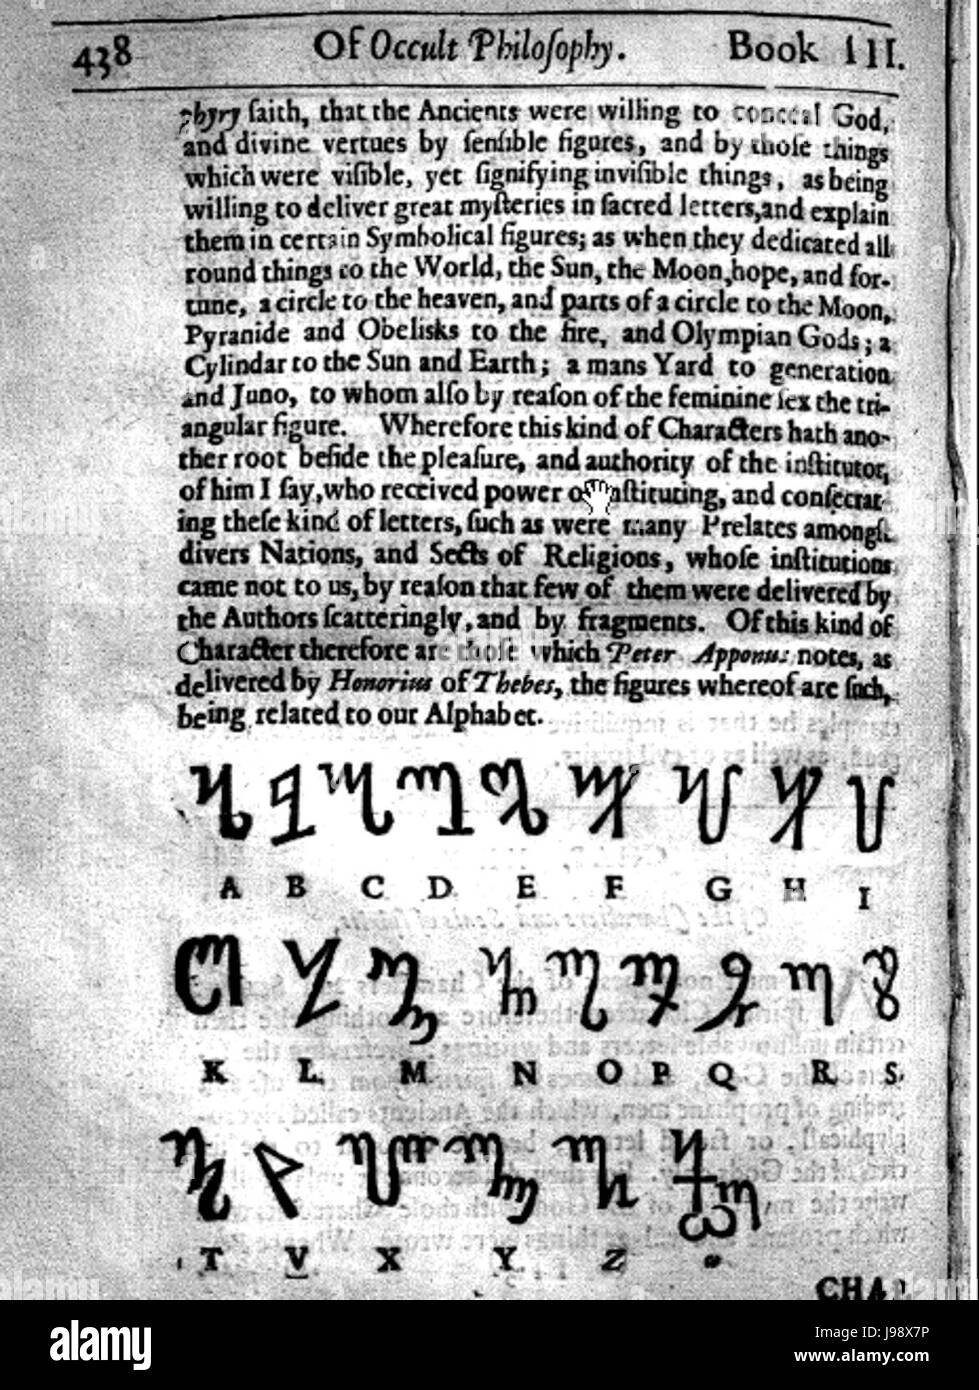 438 Of Occult Philoſophy. Book III.
phyry ſaith, that the Ancients were willing to conceal God,
and divine vertues by ſenſible figures, and by thoſe things
which were viſible, yet ſignifying inviſible things, as being
willing to deliver great myſteries in ſacred letters, and explain
them in certain Symbolical figures; as when they dedicated all
round things to the World, the Sun, the Moon, hope, and for-
tune, a circle to the heaven, and parts of a circle to the Moon,
Pyranide and Obelisks to the fire, and Olympian Gods; a
Cylindar to the Sun and Earth; a mans Yard to generation
and Juno, to whom alſo by reaſon of the feminine ſex the tri-
angular figure. Wherefore this kind of Characters hath ano-
ther root beſide the pleaſure, and authority of the inſtitutor,
of him I ſay, who received power of inſtituting, and conſecrat-
ing theſe kind of letters, ſuch as were many Prelates amongſt
divers Nations, and Sects of Religions, whoſe inſtitutions
came not to us, by reaſon that few of them were delivered by
the Authors ſcatteringly, and by fragments. Of this kind of
Character therefore are thoſe which Peter Apponus notes, as
delivered by Honorius of Thebes, the figures whereof are ſuch,
being related to our Alphabet.
A B C D E F G H I
K L M N O P Q R S
T V X Y Z
CHAP
alamy
Image ID: J98X7P
www.alamy.com